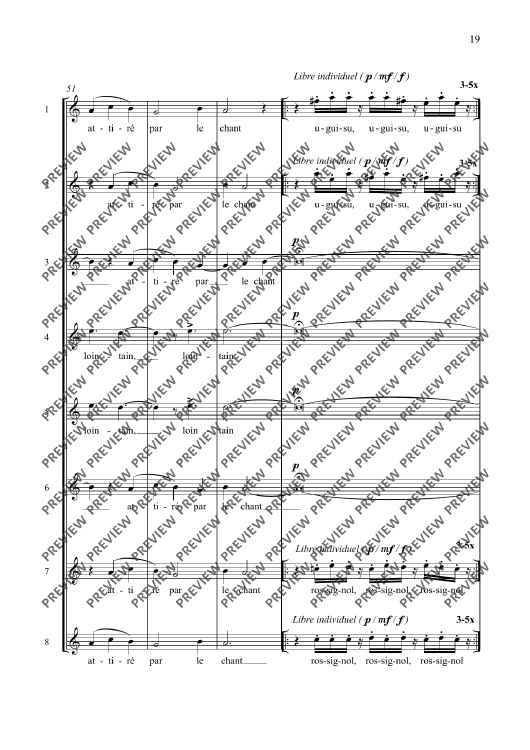 19
Libre individuel ( p / mf / f )
3-5x
51
1
at - ti - ré par le chant u - gui-su, u - gui-su, u - gui-su
Libre individuel ( p / mf / f )
3-5x
at - ti - ré par le chant u - gui-su, u - gui-su, u - gui-su
p
3
at - ti - ré par le chant
p
4
loin - tain, loin - tain,
p
loin - tain, loin - tain
p
6
at - ti - ré par le chant
Libre individuel ( p / mf / f )
3-5x
7
at - ti - ré par le chant ros-sig-nol, ros-sig-nol, ros-sig-nol
Libre individuel ( p / mf / f )
3-5x
8
at - ti - ré par le chant ros-sig-nol, ros-sig-nol, ros-sig-nol
PREVIEW PREVIEW PREVIEW PREVIEW PREVIEW PREVIEW